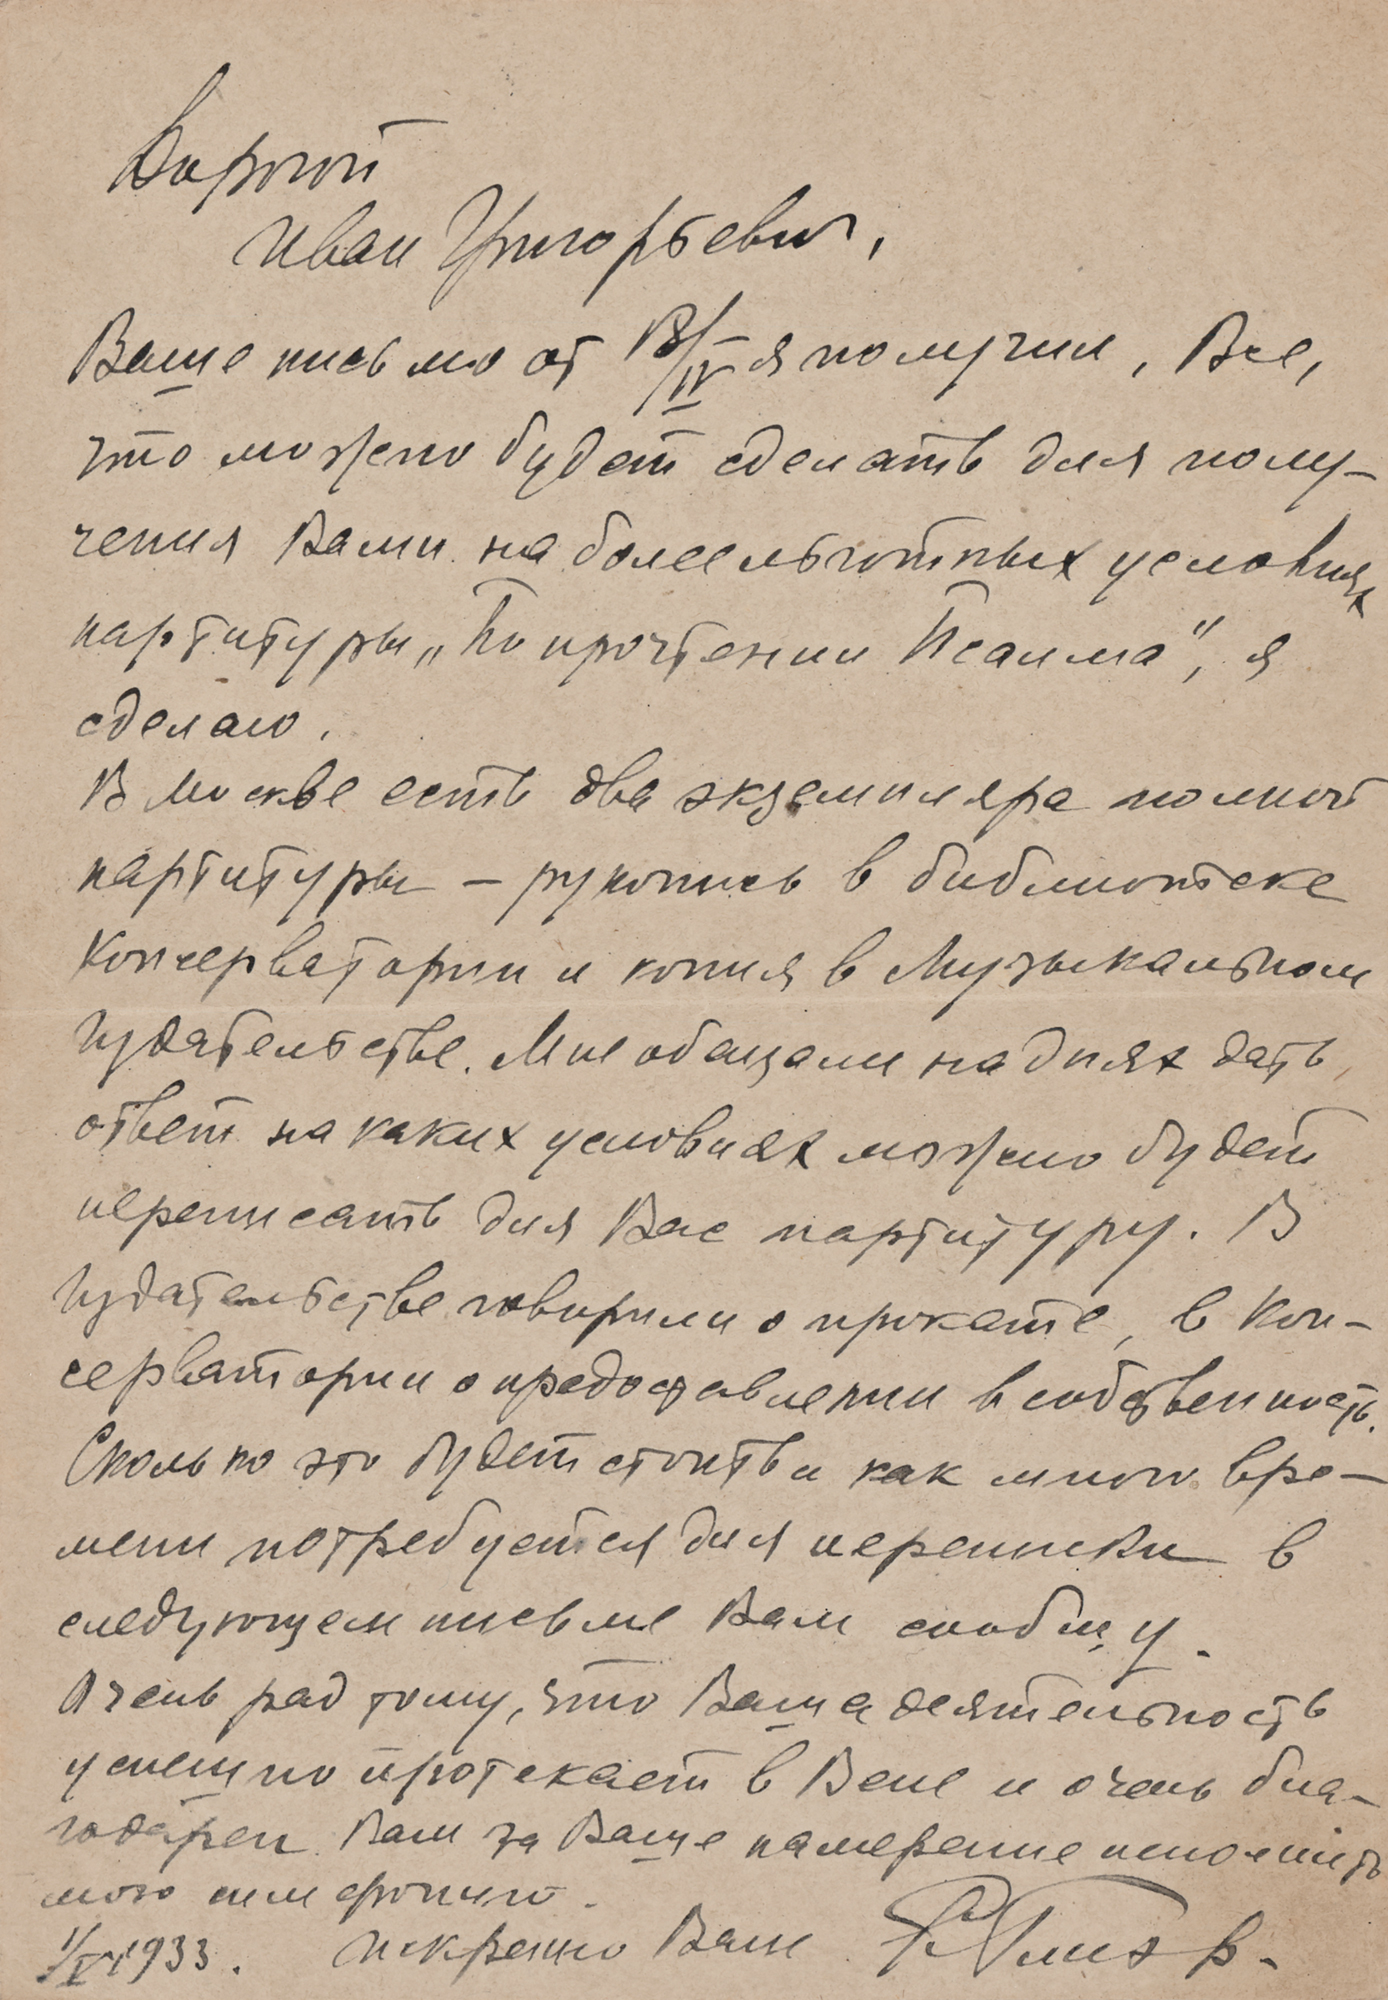 Дорогой
Иван Григорьевич,
Ваше письмо от 18/IV я получил. Все,
что можно будет сделать для полу-
чения Вами на более льготных условиях
партитуры „По прочтении Псалма“, я
сделаю.
В Москве есть два экземпляра полной
партитуры – рукопись в библиотеке
Консерватории и копия в Музыкальном
Издательстве. Мне обещали на днях дать
ответ на каких условиях можно будет
переписать для Вас партитуру. В
Издательстве говорили о прокате, в Кон-
серватории о предоставлении в собственность.
Сколько это будет стоить и как много вре-
мени потребуется для переписки в
следующем письме Вам сообщу.
Очень рад тому, что Ваша деятельность
успешно протекает в Вене и очень бла-
годарен Вам за Ваше намерение исполнить
мою симфонию.
1933. Искренно Ваш Р. Глиэр.